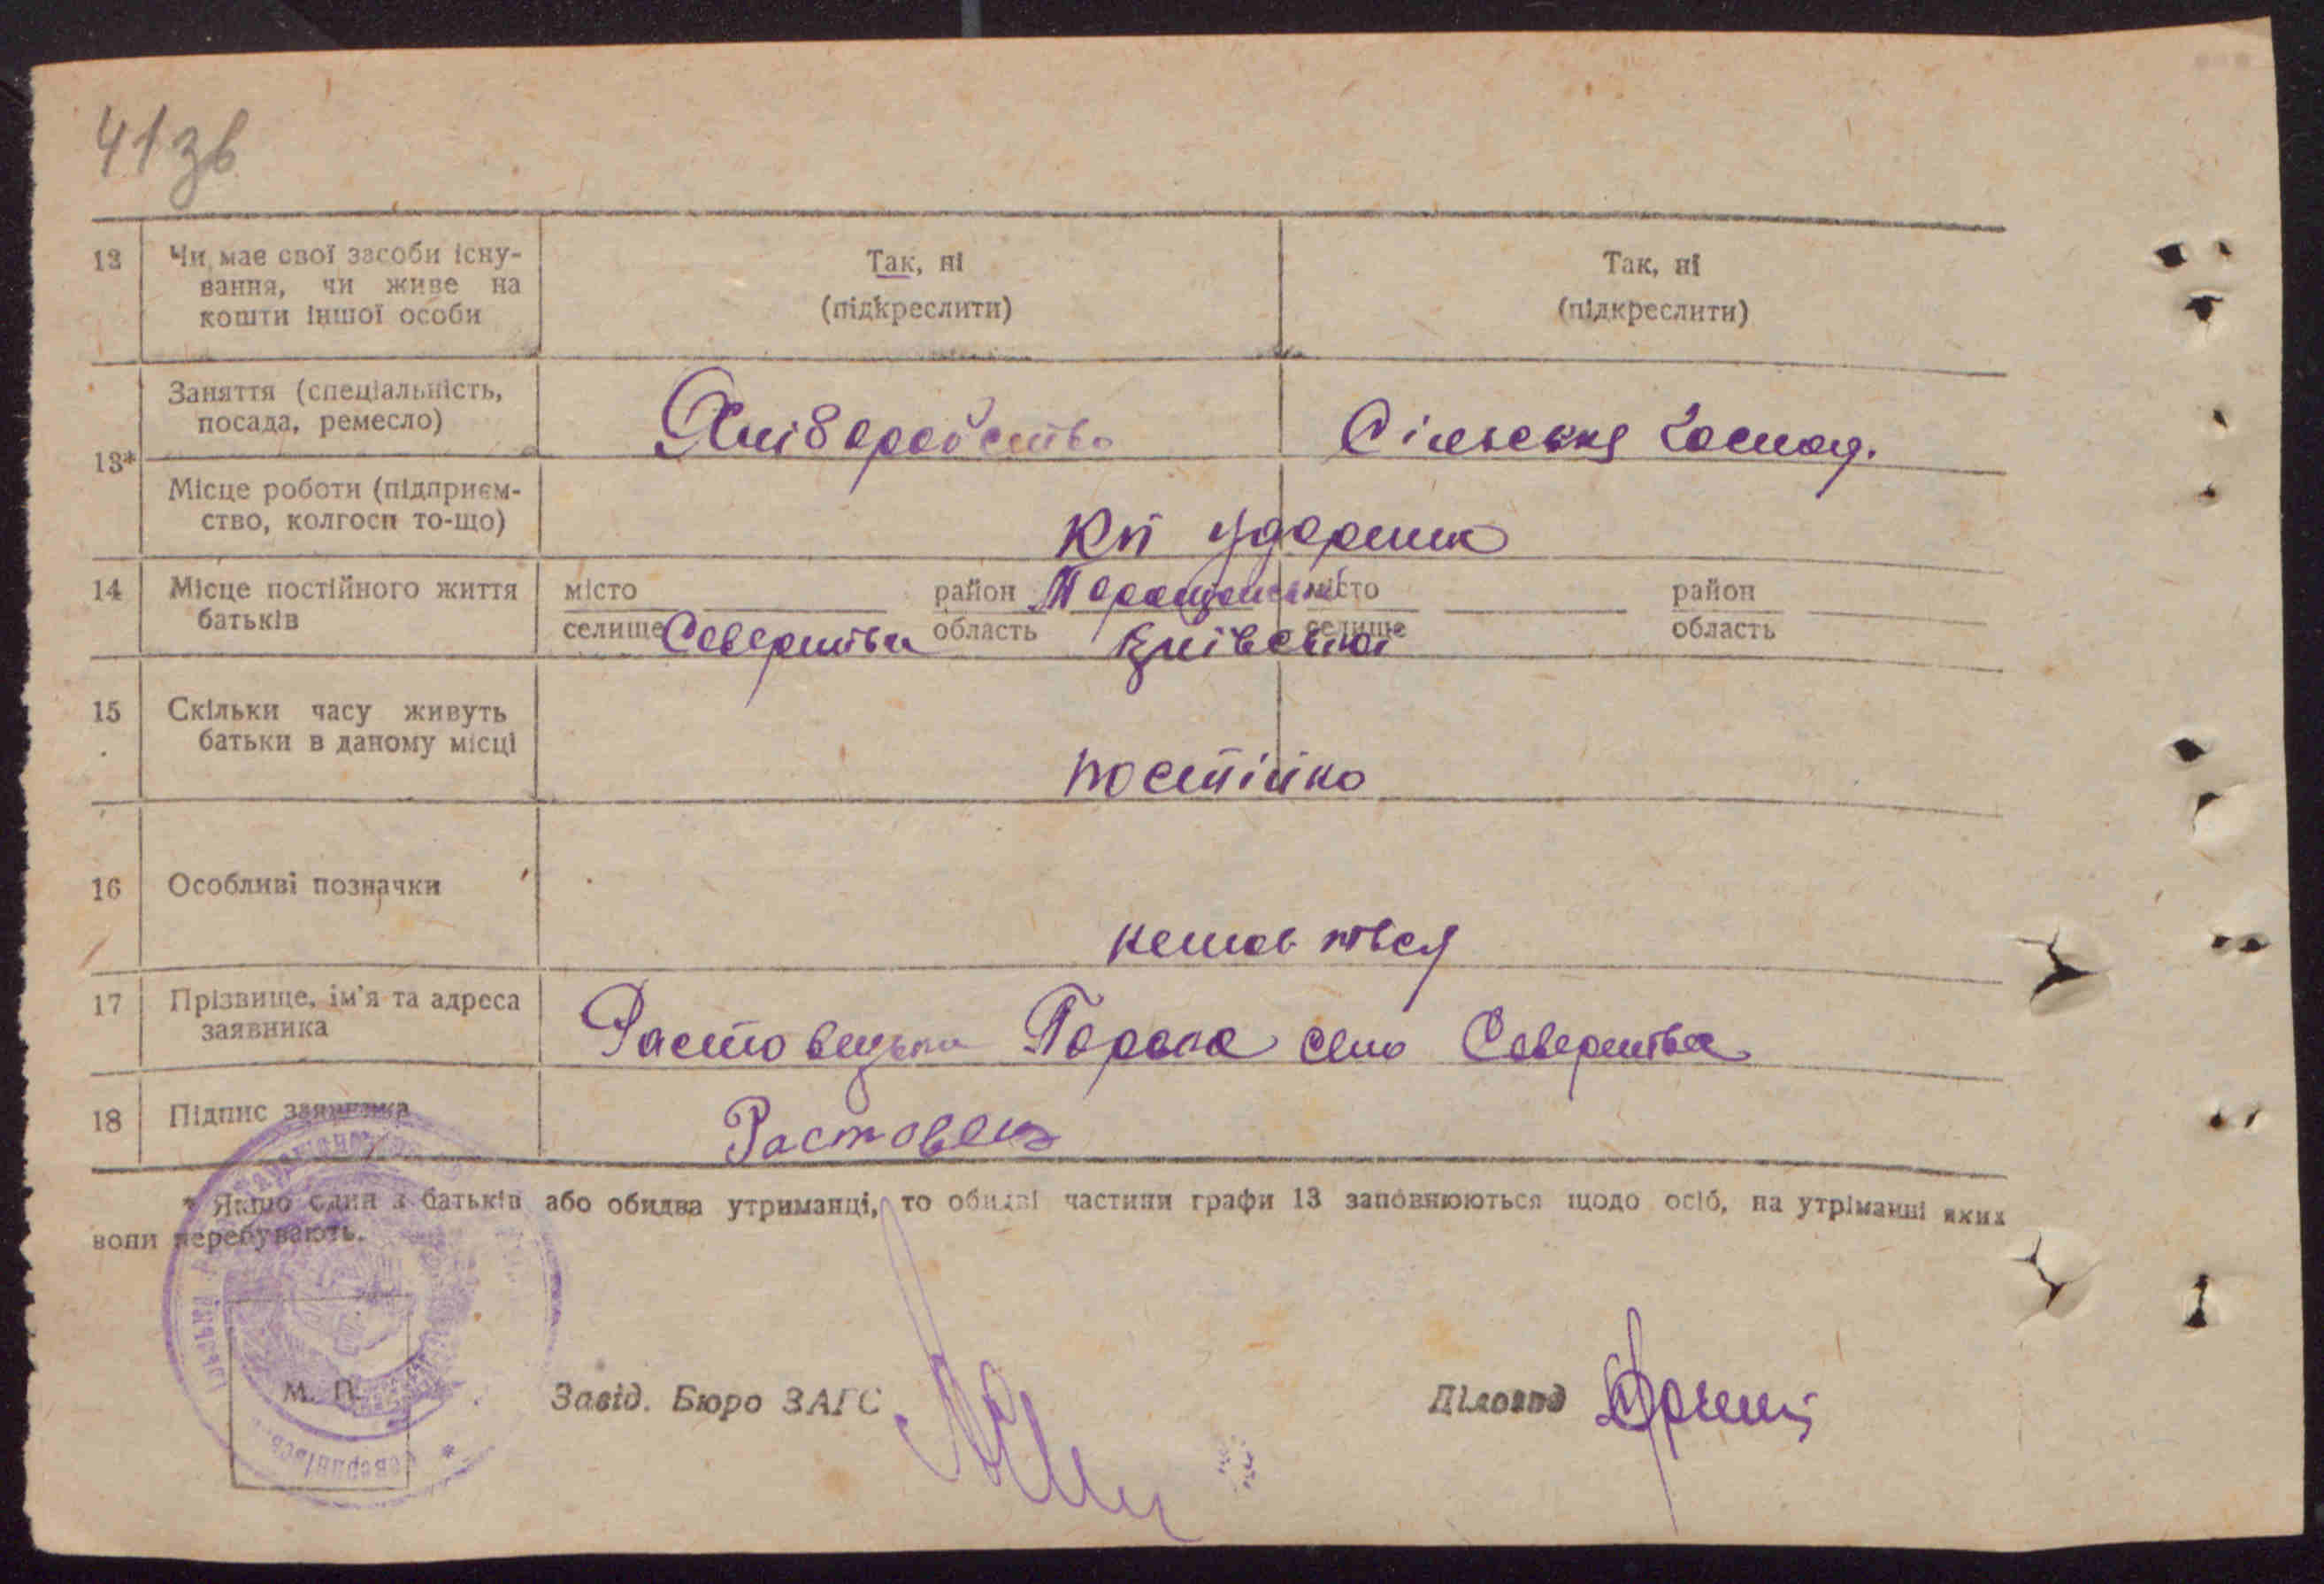 41зв
12 Чи має свої засоби існу-
вання, чи живе на
кошти іншої особи
Так, ні
(підкреслити)
Так, ні
(підкреслити)
13*
Заняття (спеціальність,
посада, ремесло)
Хліборобство
Сільське господ.
Місце роботи (підприєм-
ство, колгосп то-що)
Кп ударник
14 Місце постійного життя
батьків
місто район Таращанськ місто район
селище Северинівка область Київської селище область
15 Скільки часу живуть
батьки в даному місці
постійно
16 Особливі позначки
17 Прізвище, ім'я та адреса
заявника
Растовецька село Северинівка
18 Підпис заявника
Растовец
* Якщо один з батьків або обидва утриманці, то обидві частини графи 13 заповнюються щодо осіб, на утріманні яких
вони перебувають.
М. П.
Завід. Бюро ЗАГС
Діловод